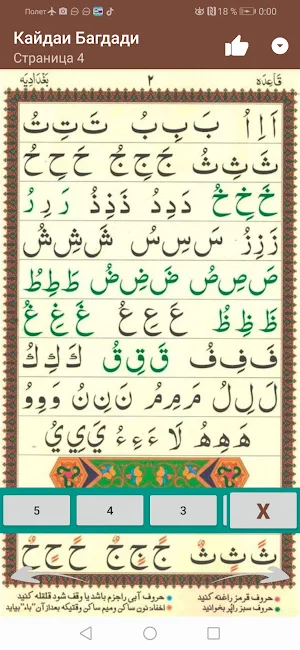 Полет 18 % 0:00
Кайдаи Багдади
Страница 4
قاعِده ٢ بَغْدَادِيَه
اَ اِ اُ بَ بِ بُ تَ تِ تُ
ثَ ثِ ثُ جَ جِ جُ حَ حِ حُ
خَ خِ خُ دَ دِ دُ ذَ ذِ ذُ رَ رِ رُ
زَ زِ زُ سَ سِ سُ شَ شِ شُ
صَ صِ صُ ضَ ضِ ضُ طَ طِ طُ
ظَ ظِ ظُ عَ عِ عُ غَ غِ غُ
فَ فِ فُ قَ قِ قُ كَ كِ كُ
لَ لِ لُ مَ مِ مُ نَ نِ نُ وَ وِ وُ
هَ هِ هُ لَا ءَ ءِ ءُ يَ يِ يُ
5 4 3 X
ثً ثٍ ثٌ جً جٍ جٌ حً حٍ حٌ
حروف قرمز راغنه کنید حروف آبی راجزم باشد یا وقف شود قلقله کنید
حروف سبز راپر بخوانید اخفاء نون ساکن ومیم ساکن وقتیکه بعداز آن "باء" بیاید